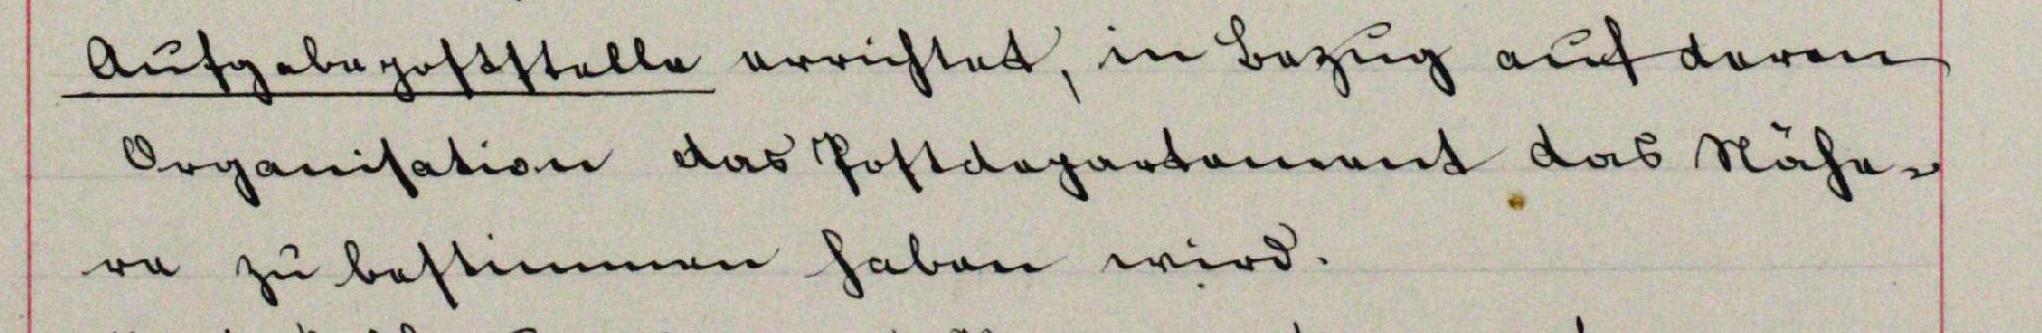 Aufgabepoststelle errichtet, in Bezug auf deren
Organisation das Postdepartement das Nähe-
re zu bestimmen haben wird.